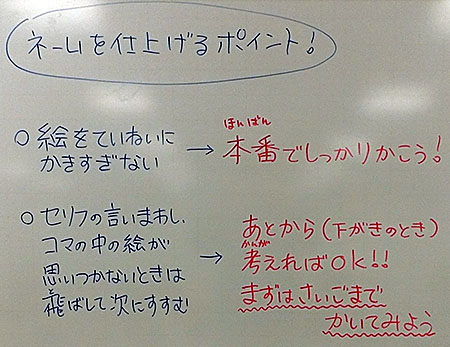 ネームを仕上げるポイント!
○ 絵をていねいに
かきすぎない
→ 本番でしっかりかこう!
ほんばん
○ セリフの言いまわし、
コマの中の絵が
思いつかないときは
飛ばして次にすすむ
と
→ あとから(下がきのとき)
考えればOK!!
かんが
まずはさいごまで
かいてみよう